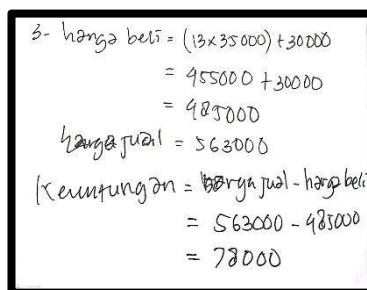 3- harga beli = (13x35000) + 30000
= 455000 + 30000
= 485000
harga jual = 563000
Keuntungan = harga jual - harga beli
= 563000 - 485000
= 78000